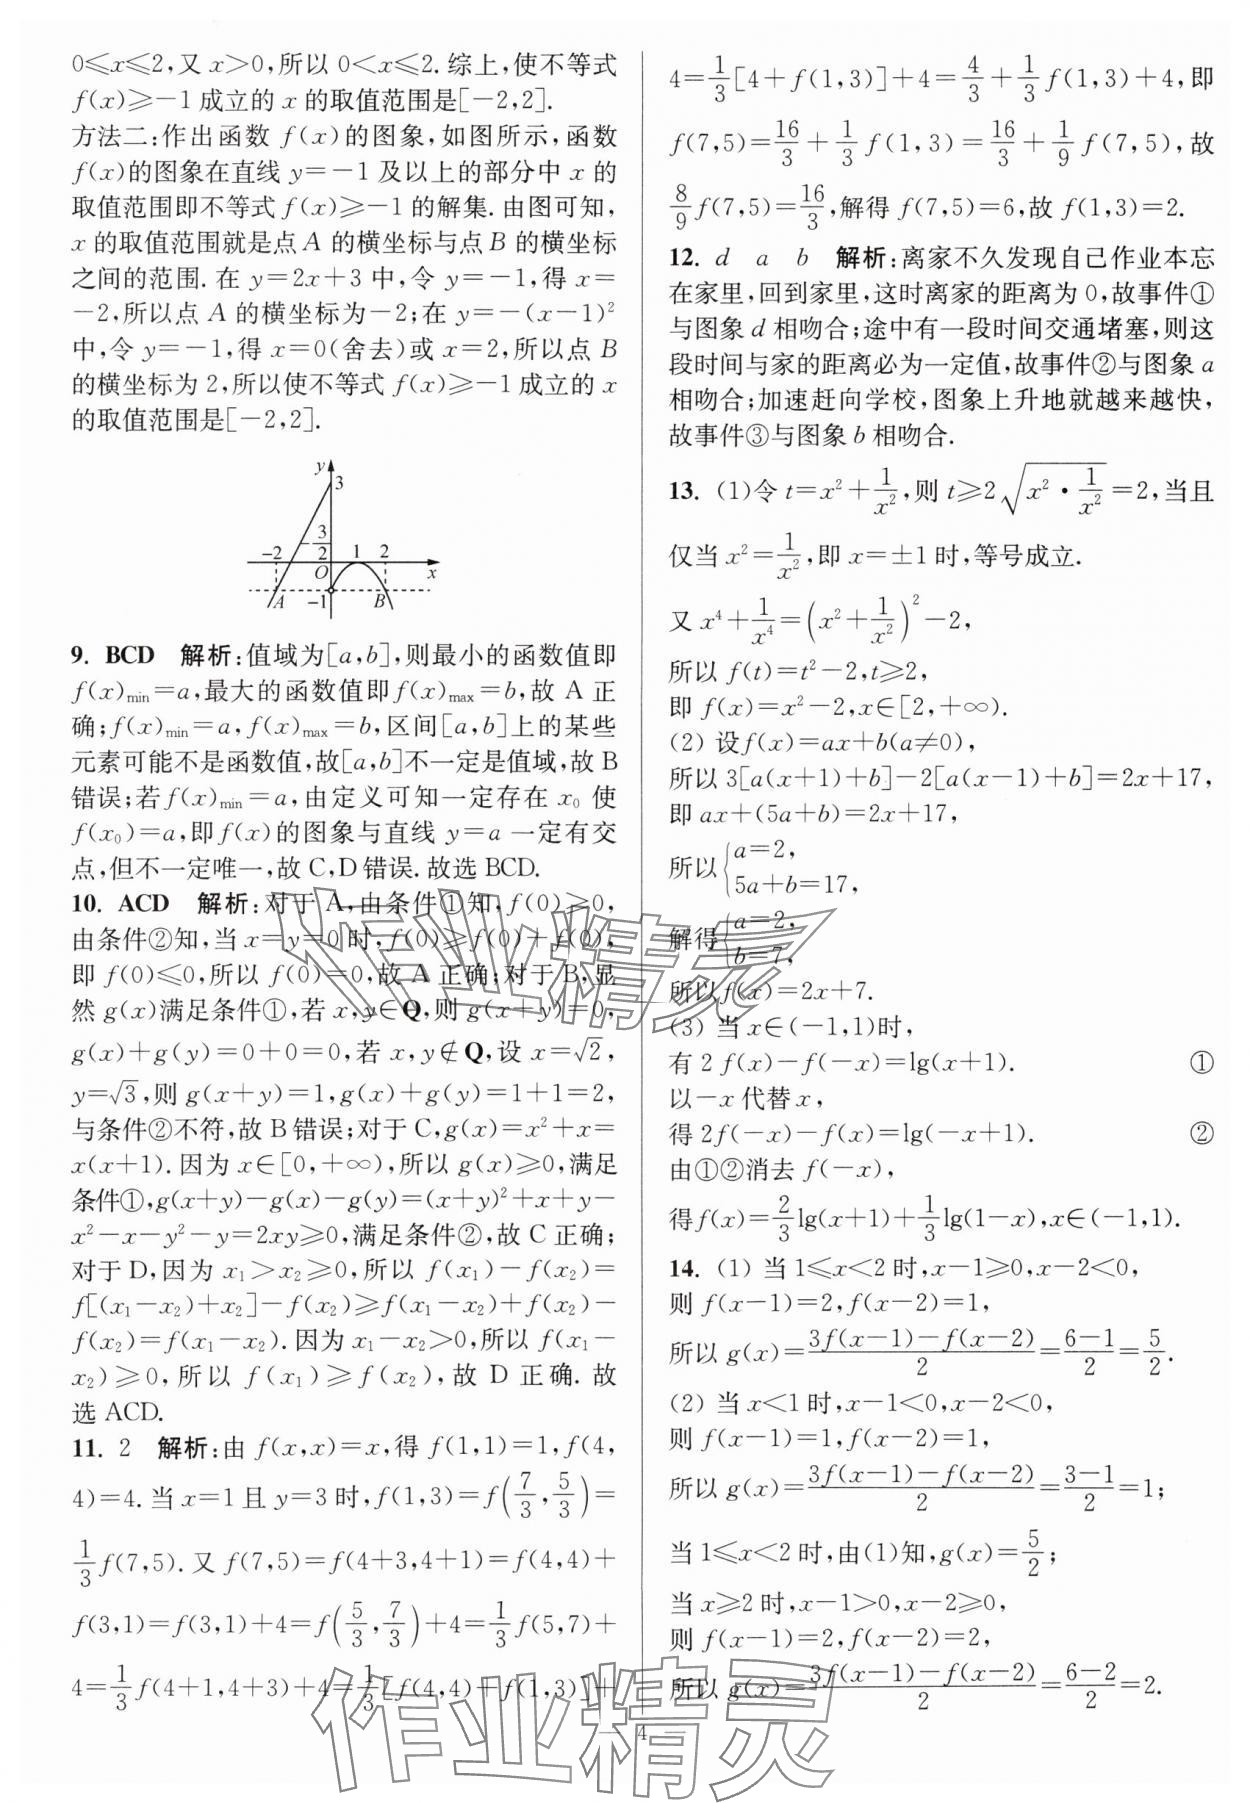 0≤x≤2,又 x>0,所以 0<x≤2.综上,使不等式
f(x)≥-1 成立的 x 的取值范围是[-2,2].
方法二:作出函数 f(x)的图象,如图所示,函数
f(x)的图象在直线 y=-1 及以上的部分中 x 的
取值范围即不等式 f(x)≥-1 的解集.由图可知,
x 的取值范围就是点 A 的横坐标与点 B 的横坐标
之间的范围.在 y=2x+3 中,令 y=-1,得 x=
-2,所以点 A 的横坐标为-2;在 y=-(x-1)²
中,令 y=-1,得 x=0(舍去)或 x=2,所以点 B
的横坐标为 2,所以使不等式 f(x)≥-1 成立的 x
的取值范围是[-2,2].
y
3
-3/2
-2 1 2
O x
A -1 B
9. BCD 解析:值域为[a,b],则最小的函数值即
f(x)min=a,最大的函数值即 f(x)max=b,故 A 正
确;f(x)min=a,f(x)max=b,区间[a,b]上的某些
元素可能不是函数值,故[a,b]不一定是值域,故 B
错误;若 f(x)min=a,由定义可知一定存在 x₀ 使
f(x₀)=a,即 f(x)的图象与直线 y=a 一定有交
点,但不一定唯一,故 C,D 错误.故选 BCD.
10. ACD 解析:对于 A,由条件①知,f(0)≥0,
由条件②知,当 x=y=0 时,f(0)≥f(0)+f(0),
即 f(0)≤0,所以 f(0)=0,故 A 正确;对于 B,显
然 g(x)满足条件①,若 x,y∈Q,则 g(x+y)=0,
g(x)+g(y)=0+0=0,若 x,y∉Q,设 x=√2,
y=√3,则 g(x+y)=1,g(x)+g(y)=1+1=2,
与条件②不符,故 B 错误;对于 C,g(x)=x²+x=
x(x+1).因为 x∈[0,+∞),所以 g(x)≥0,满足
条件①,g(x+y)-g(x)-g(y)=(x+y)²+x+y-
x²-x-y²-y=2xy≥0,满足条件②,故 C 正确;
对于 D,因为 x₁>x₂≥0,所以 f(x₁)-f(x₂)=
f[(x₁-x₂)+x₂]-f(x₂)≥f(x₁-x₂)+f(x₂)-
f(x₂)=f(x₁-x₂).因为 x₁-x₂>0,所以 f(x₁-
x₂)≥0,所以 f(x₁)≥f(x₂),故 D 正确.故
选 ACD.
11. 2 解析:由 f(x,x)=x,得 f(1,1)=1,f(4,
4)=4.当 x=1 且 y=3 时,f(1,3)=f(7/3,5/3)=
1/3 f(7,5).又 f(7,5)=f(4+3,4+1)=f(4,4)+
f(3,1)=f(3,1)+4=f(5/3,7/3)+4=1/3 f(5,7)+
4=1/3 f(4+1,4+3)+4=1/3[f(4,4)+f(1,3)]+
4=1/3[4+f(1,3)]+4=4/3+1/3 f(1,3)+4,即
f(7,5)=16/3+1/3 f(1,3)=16/3+1/9 f(7,5),故
8/9 f(7,5)=16/3,解得 f(7,5)=6,故 f(1,3)=2.
12. d a b 解析:离家不久发现自己作业本忘
在家里,回到家里,这时离家的距离为 0,故事件①
与图象 d 相吻合;途中有一段时间交通堵塞,则这
段时间与家的距离必为一定值,故事件②与图象 a
相吻合;加速赶向学校,图象上升地就越来越快,
故事件③与图象 b 相吻合.
13. (1)令 t=x²+1/x²,则 t≥2√(x²·1/x²)=2,当且
仅当 x²=1/x²,即 x=±1 时,等号成立.
又 x⁴+1/x⁴=(x²+1/x²)²-2,
所以 f(t)=t²-2,t≥2,
即 f(x)=x²-2,x∈[2,+∞).
(2) 设f(x)=ax+b(a≠0),
所以 3[a(x+1)+b]-2[a(x-1)+b]=2x+17,
即 ax+(5a+b)=2x+17,
所以{a=2,
5a+b=17,
解得{a=2,
b=7,
所以f(x)=2x+7.
(3) 当 x∈(-1,1)时,
有 2f(x)-f(-x)=lg(x+1). ①
以-x 代替 x,
得 2f(-x)-f(x)=lg(-x+1). ②
由①②消去 f(-x),
得f(x)=2/3 lg(x+1)+1/3 lg(1-x),x∈(-1,1).
14. (1) 当 1≤x<2 时,x-1≥0,x-2<0,
则 f(x-1)=2,f(x-2)=1,
所以 g(x)=(3f(x-1)-f(x-2))/2=(6-1)/2=5/2.
(2) 当 x<1 时,x-1<0,x-2<0,
则 f(x-1)=1,f(x-2)=1,
所以 g(x)=(3f(x-1)-f(x-2))/2=(3-1)/2=1;
当 1≤x<2 时,由(1)知,g(x)=5/2;
当 x≥2 时,x-1>0,x-2≥0,
则 f(x-1)=2,f(x-2)=2,
所以 g(x)=(3f(x-1)-f(x-2))/2=(6-2)/2=2.
— 4 —
作业精灵
作业精灵